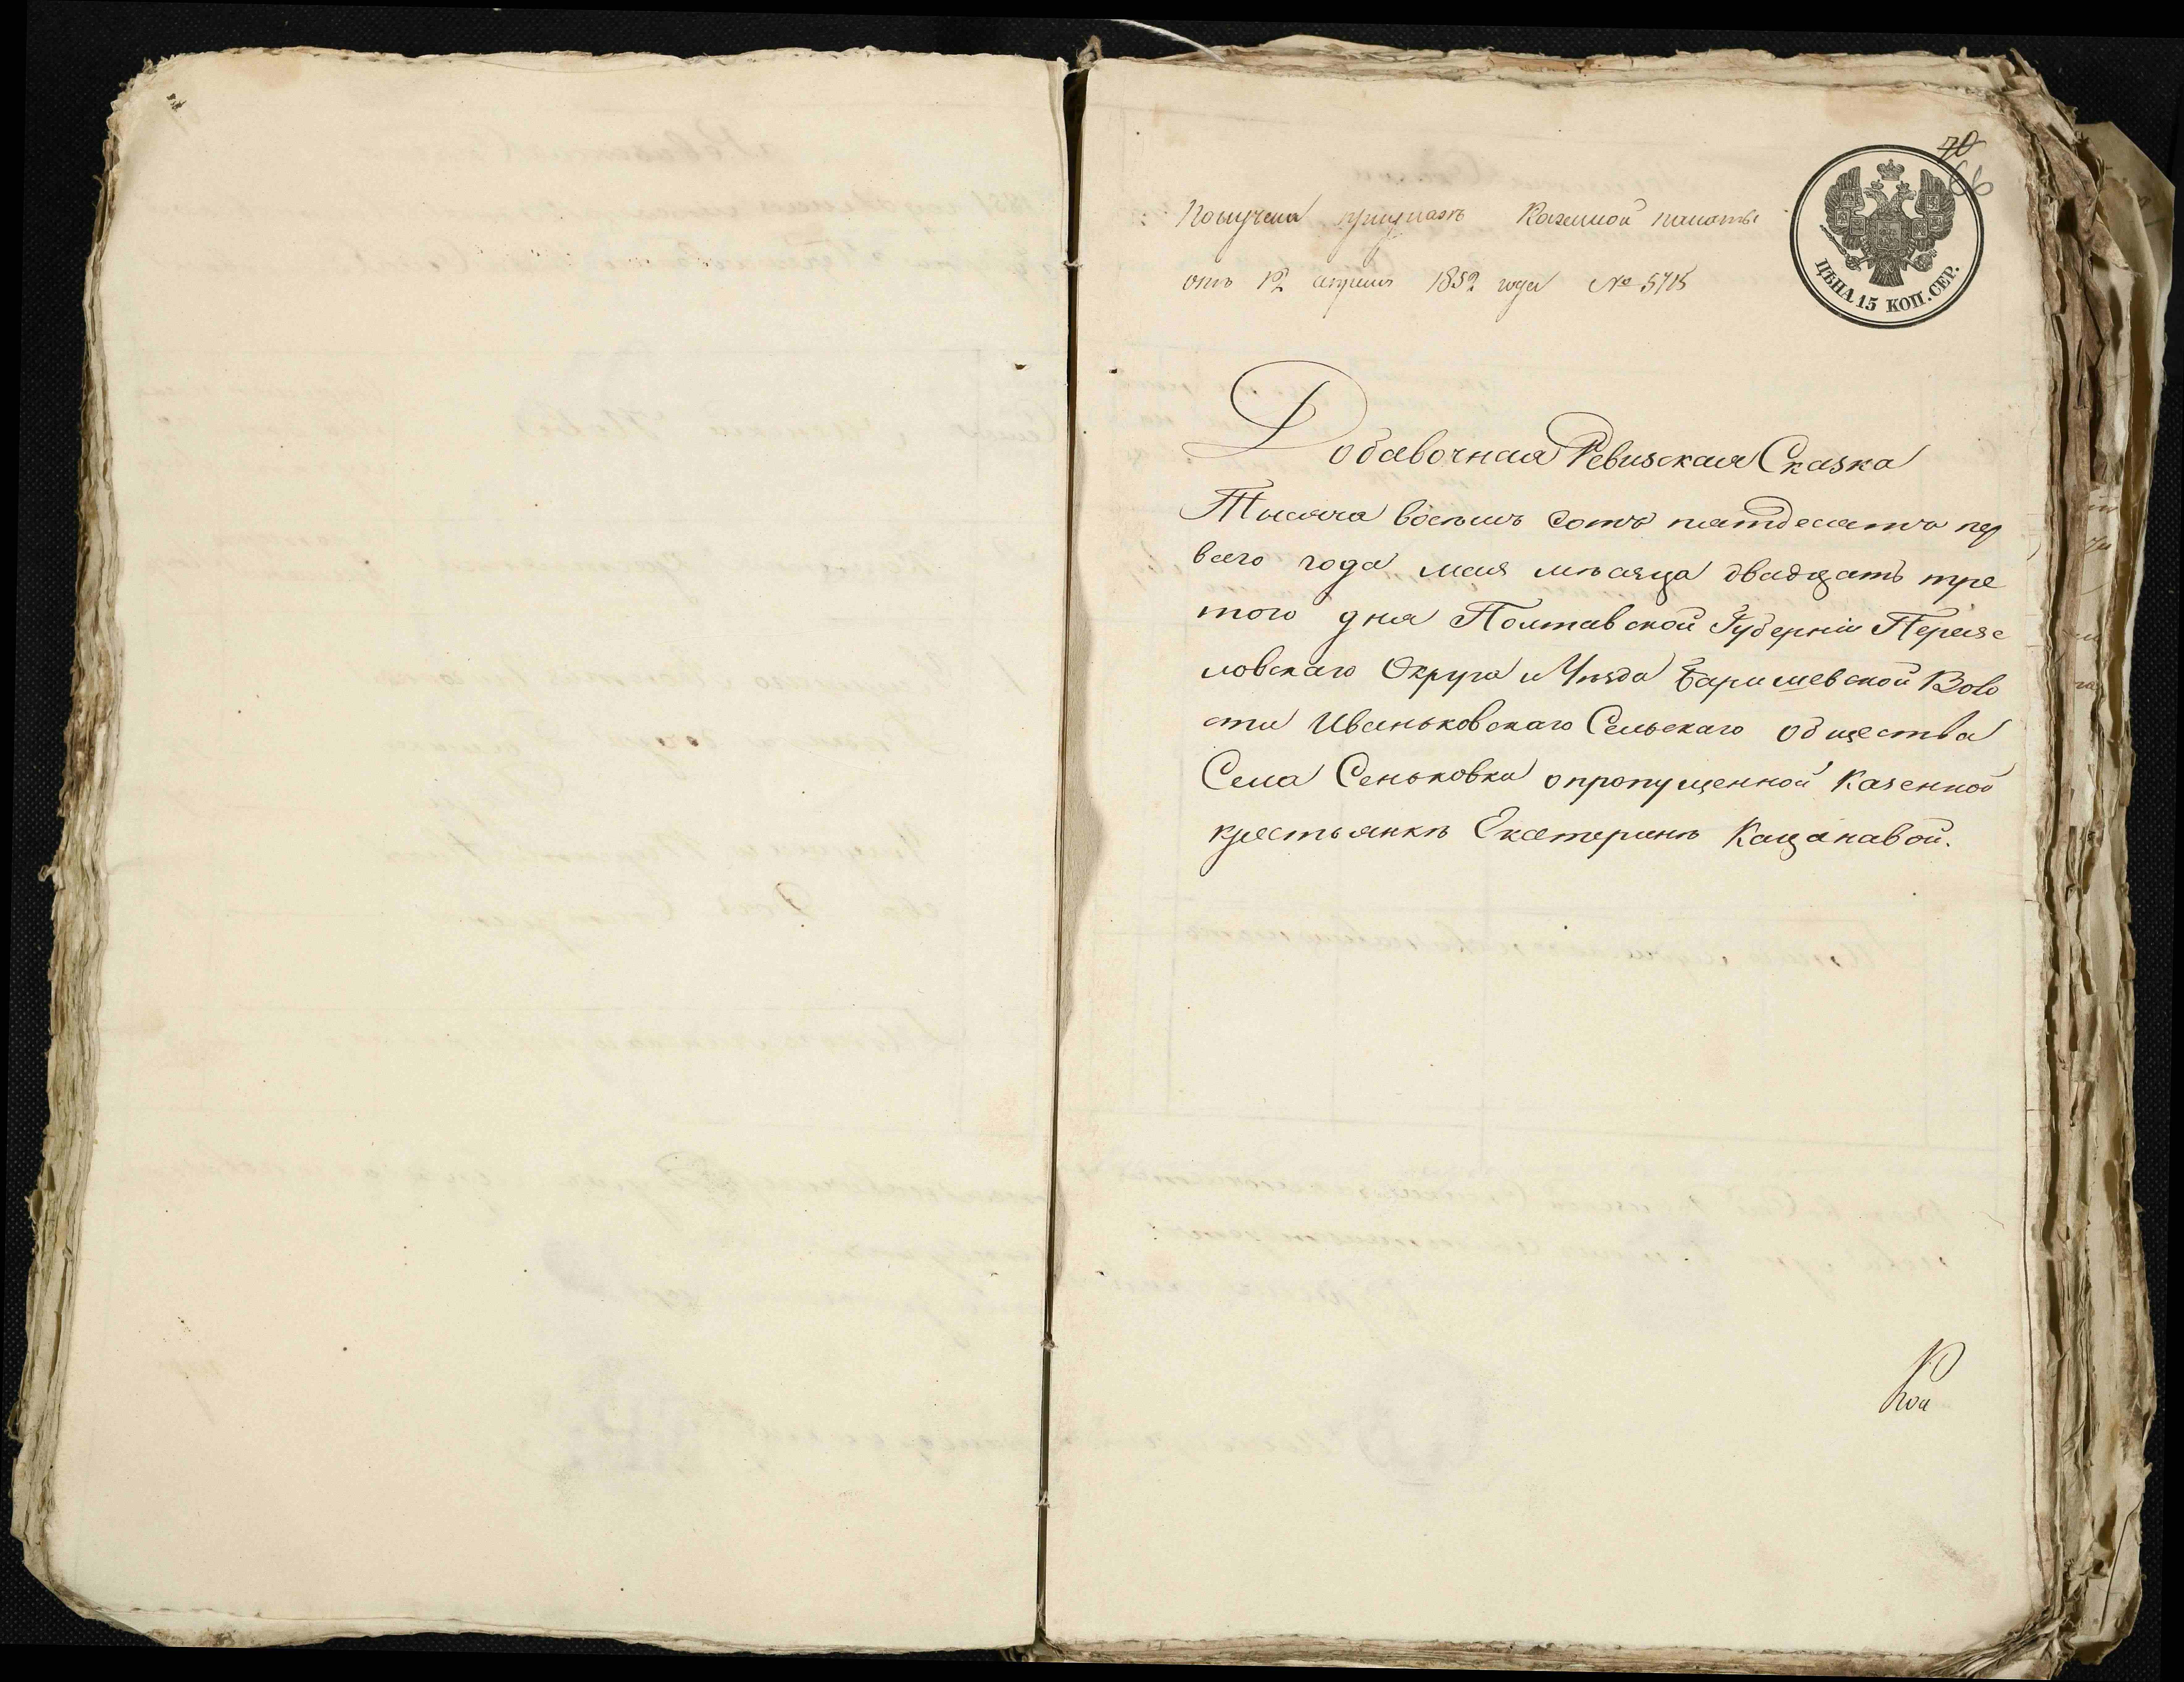 70
66
Получена приуказѣ Казенной палаты
отъ 12 апреля 1852 года № 5715
ЦѢНА 15 КОП. СЕР.
Добавочная Ревизская Сказка
Тысяча восемь сотъ пятдесятъ пер
ваго года мая мѣсяца двадцать тре
того дня Полтавской Губерніи Переяс
ловскаго Округа и Уѣзда Баришевской Воло
сти Иваньковскаго Сельскаго общества
Села Сеньковки о пропущенной Казенной
крестьянкѣ Екатеринѣ Кацановой.